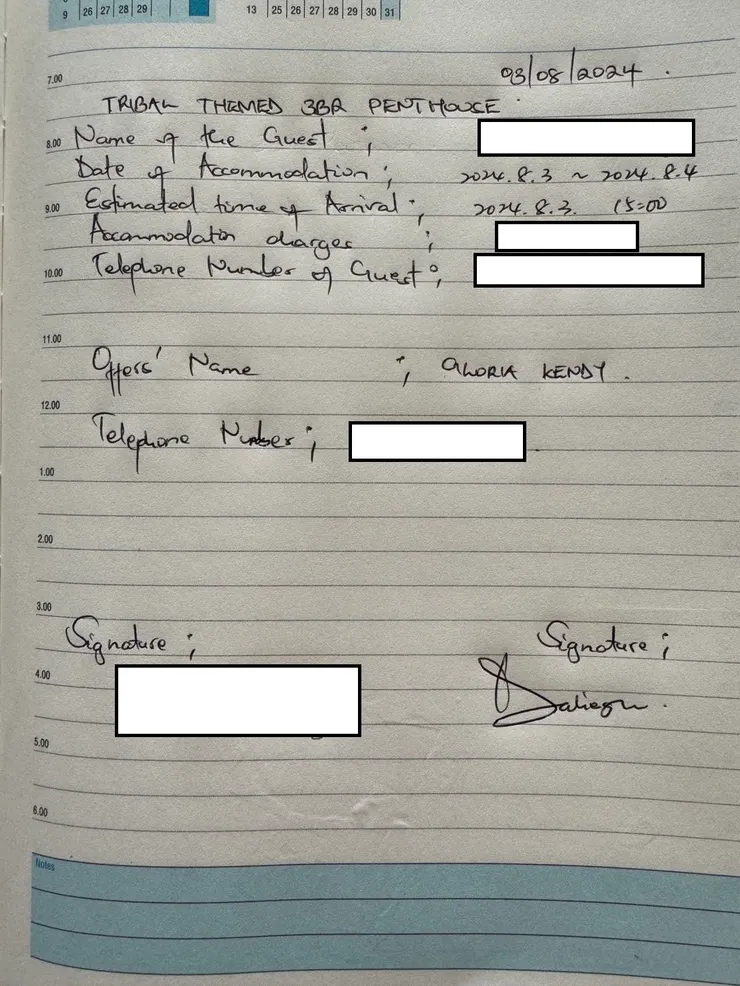 9 26 27 28 29
13 25 26 27 28 29 30 31
7.00
03/08/2024.
TRIBAL THEMED 3BR PENTHOUSE
8.00
Name of the Guest ;
Date of Accommodation ; 2024.8.3 ~ 2024.8.4
9.00
Estimated time of Arrival ; 2024.8.3. 15:00
Accommodation charges ;
10.00
Telephone Number of Guest ;
11.00
Offers' Name ; GLORIA KENDY.
12.00
Telephone Number ;
1.00
2.00
3.00
Signature ; Signature ;
4.00
5.00
6.00
Notes